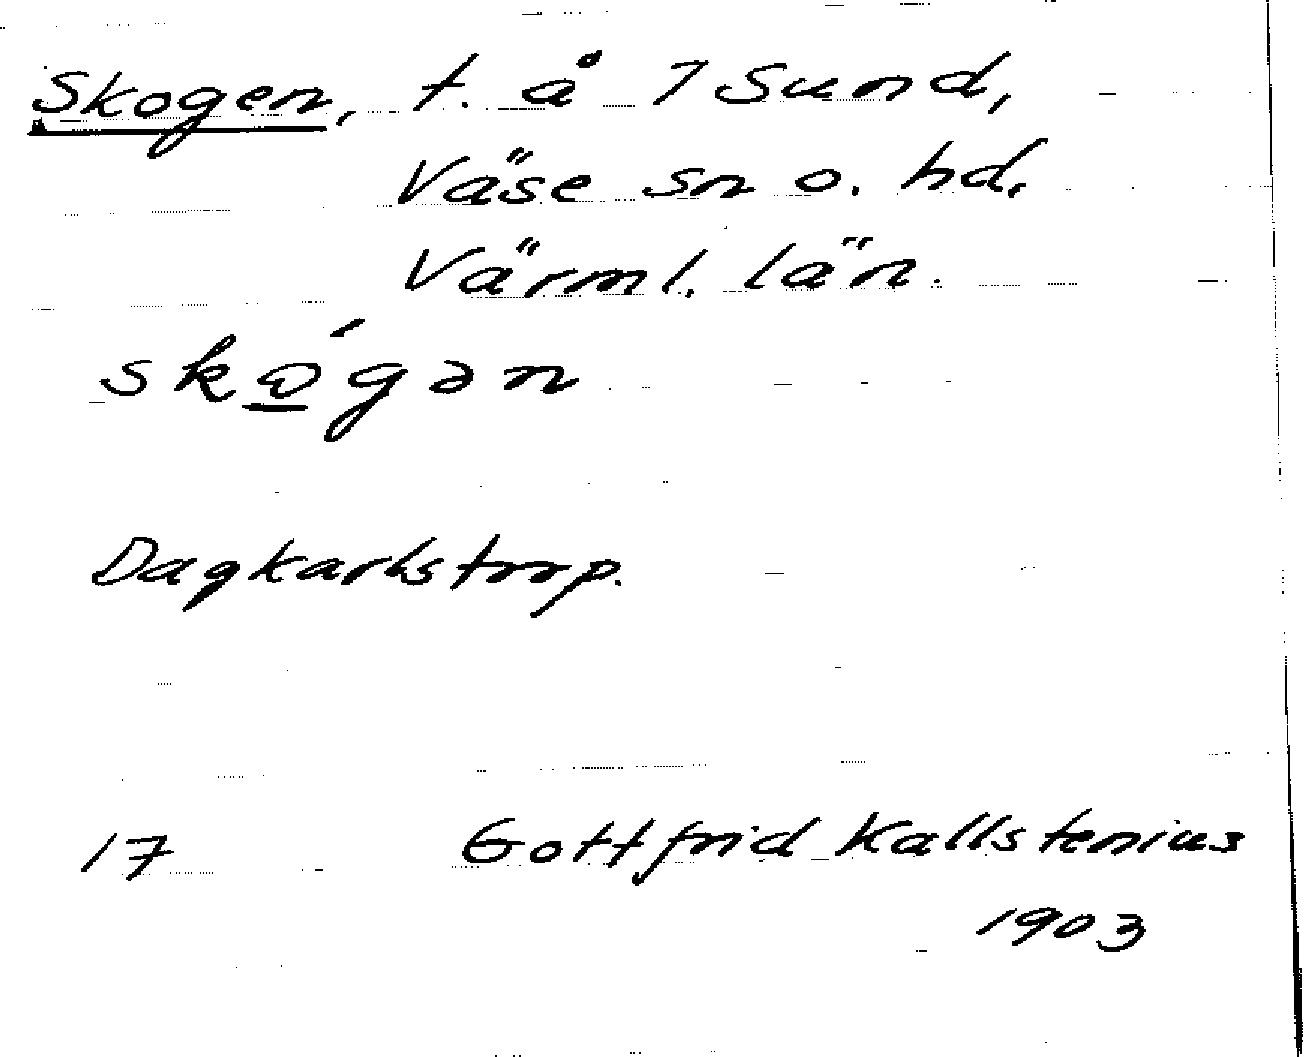 Skogen, t. å 7 Sund,
Väse sn o. hd.
Värml. län.
skǫ́gən
Dagkarlstorp.
17 Gottfrid Kallstenius
1903